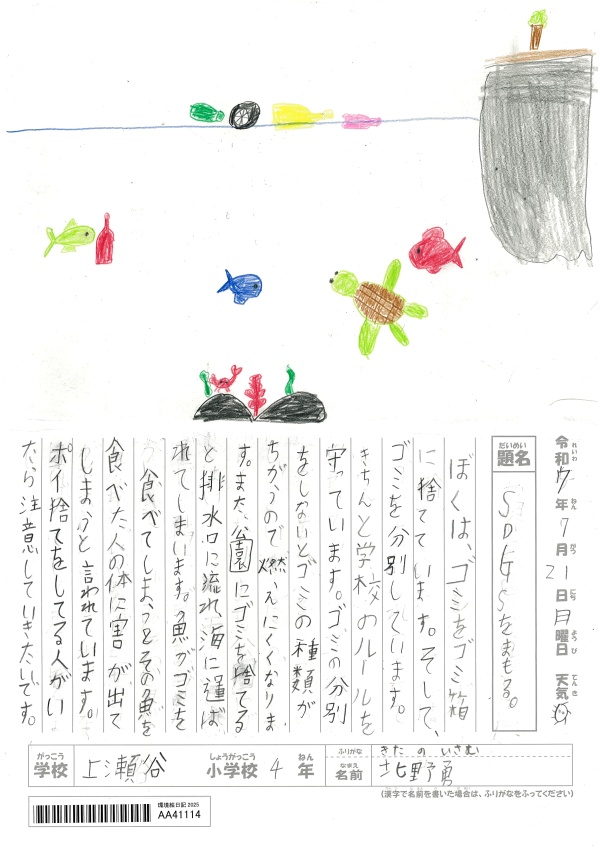 令和7年7月21日月曜日 天気
れいわ ねん がつ にち ようび てんき
だいめい
題名 SDGSをまもる。
ぼくは、ゴミをゴミ箱
に捨てています。そして、
ゴミを分別しています。
きちんと学校のルールを
守っています。ゴミの分別
をしないとゴミの種類が
ちがうので燃えにくくなりま
す。また、公園にゴミを捨てる
と排水口に流れ、海に運ば
れてしまいます。魚がゴミを
食べてしまうとその魚を
食べた人の体に害が出て
しまうと言われています。
ポイ捨てをしてる人がい
たら注意していきたいです。
がっこう しょうがっこう ねん ふりがな きたの いさむ
学校 上瀬谷 小学校 4年 なまえ 名前 北野勇
(漢字で名前を書いた場合は、ふりがなをふってください)
環境絵日記2025
AA41114